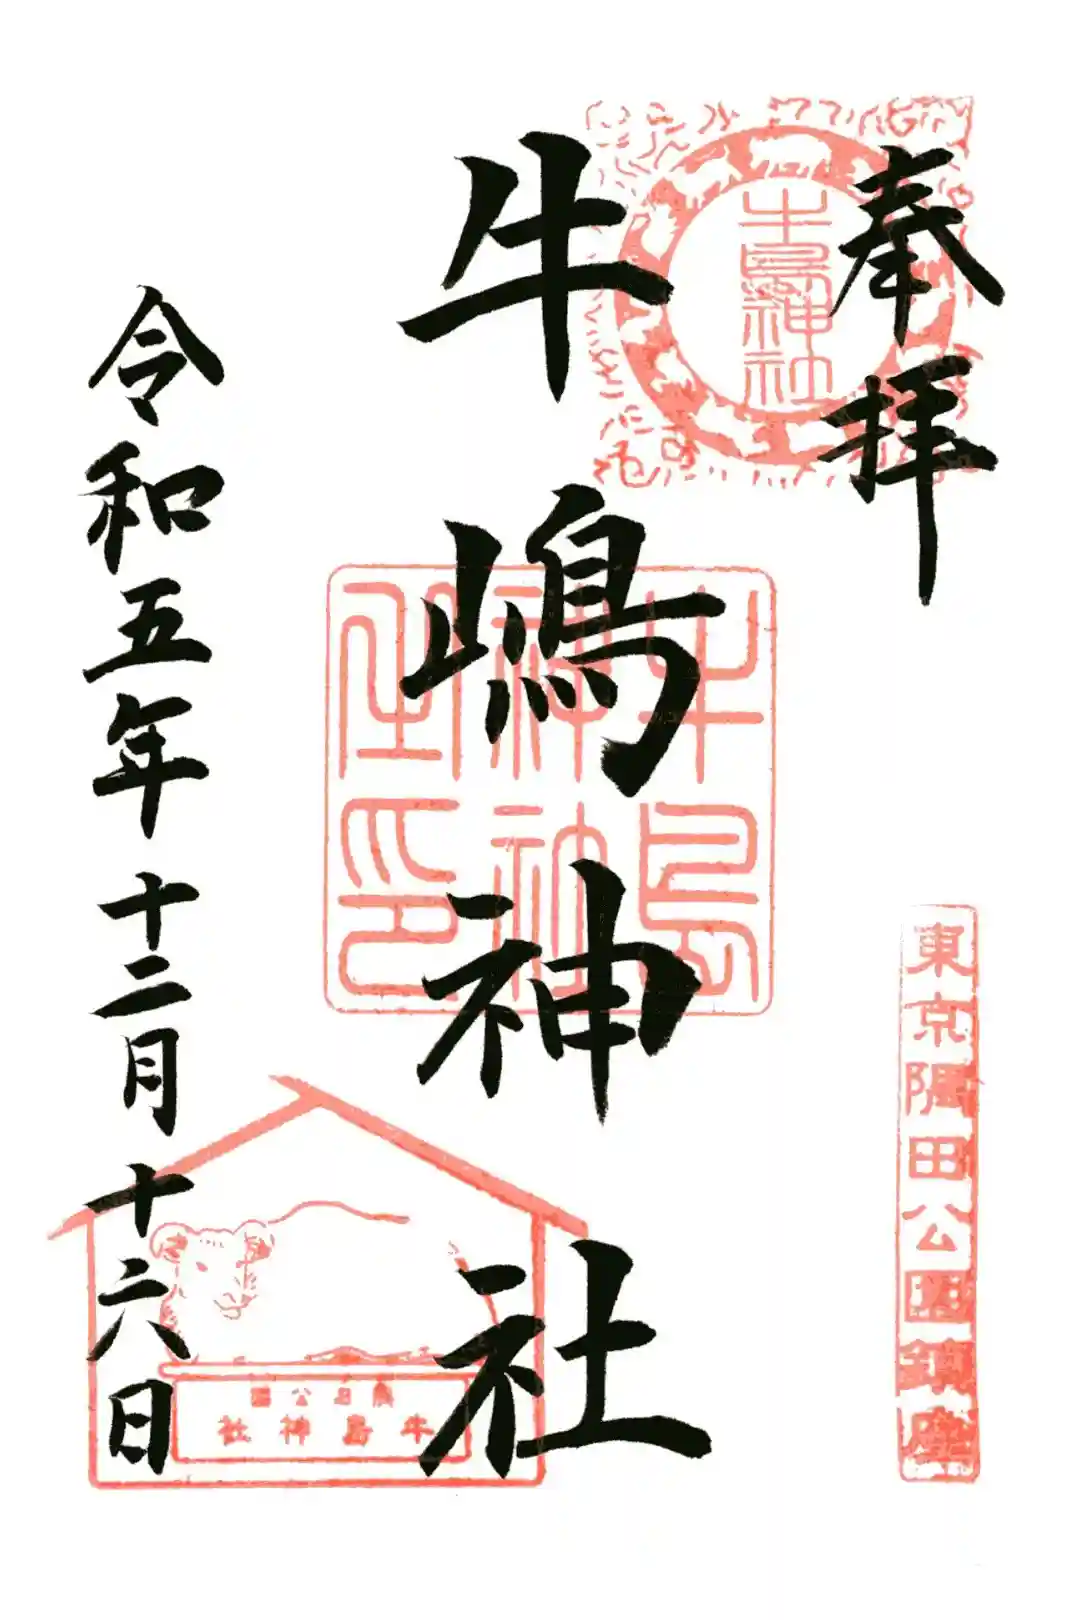 奉拝
牛島神社
東京隅田公園鎮座
牛嶋神社
牛島
神社
之印
令和五年十二月十六日
隅田公園
牛島神社